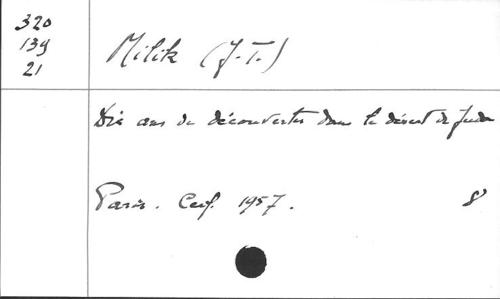 320
139
21
Milik (J.-T.)
Dix ans de découvertes dans le désert de Juda
Paris. Cerf. 1957. 8°